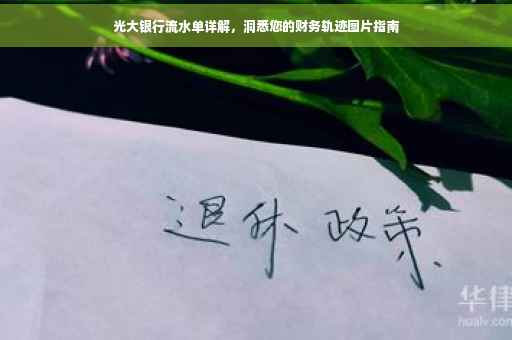 光大银行流水单详解，洞悉您的财务轨迹图片指南
退休 政策
华律
hualv.com